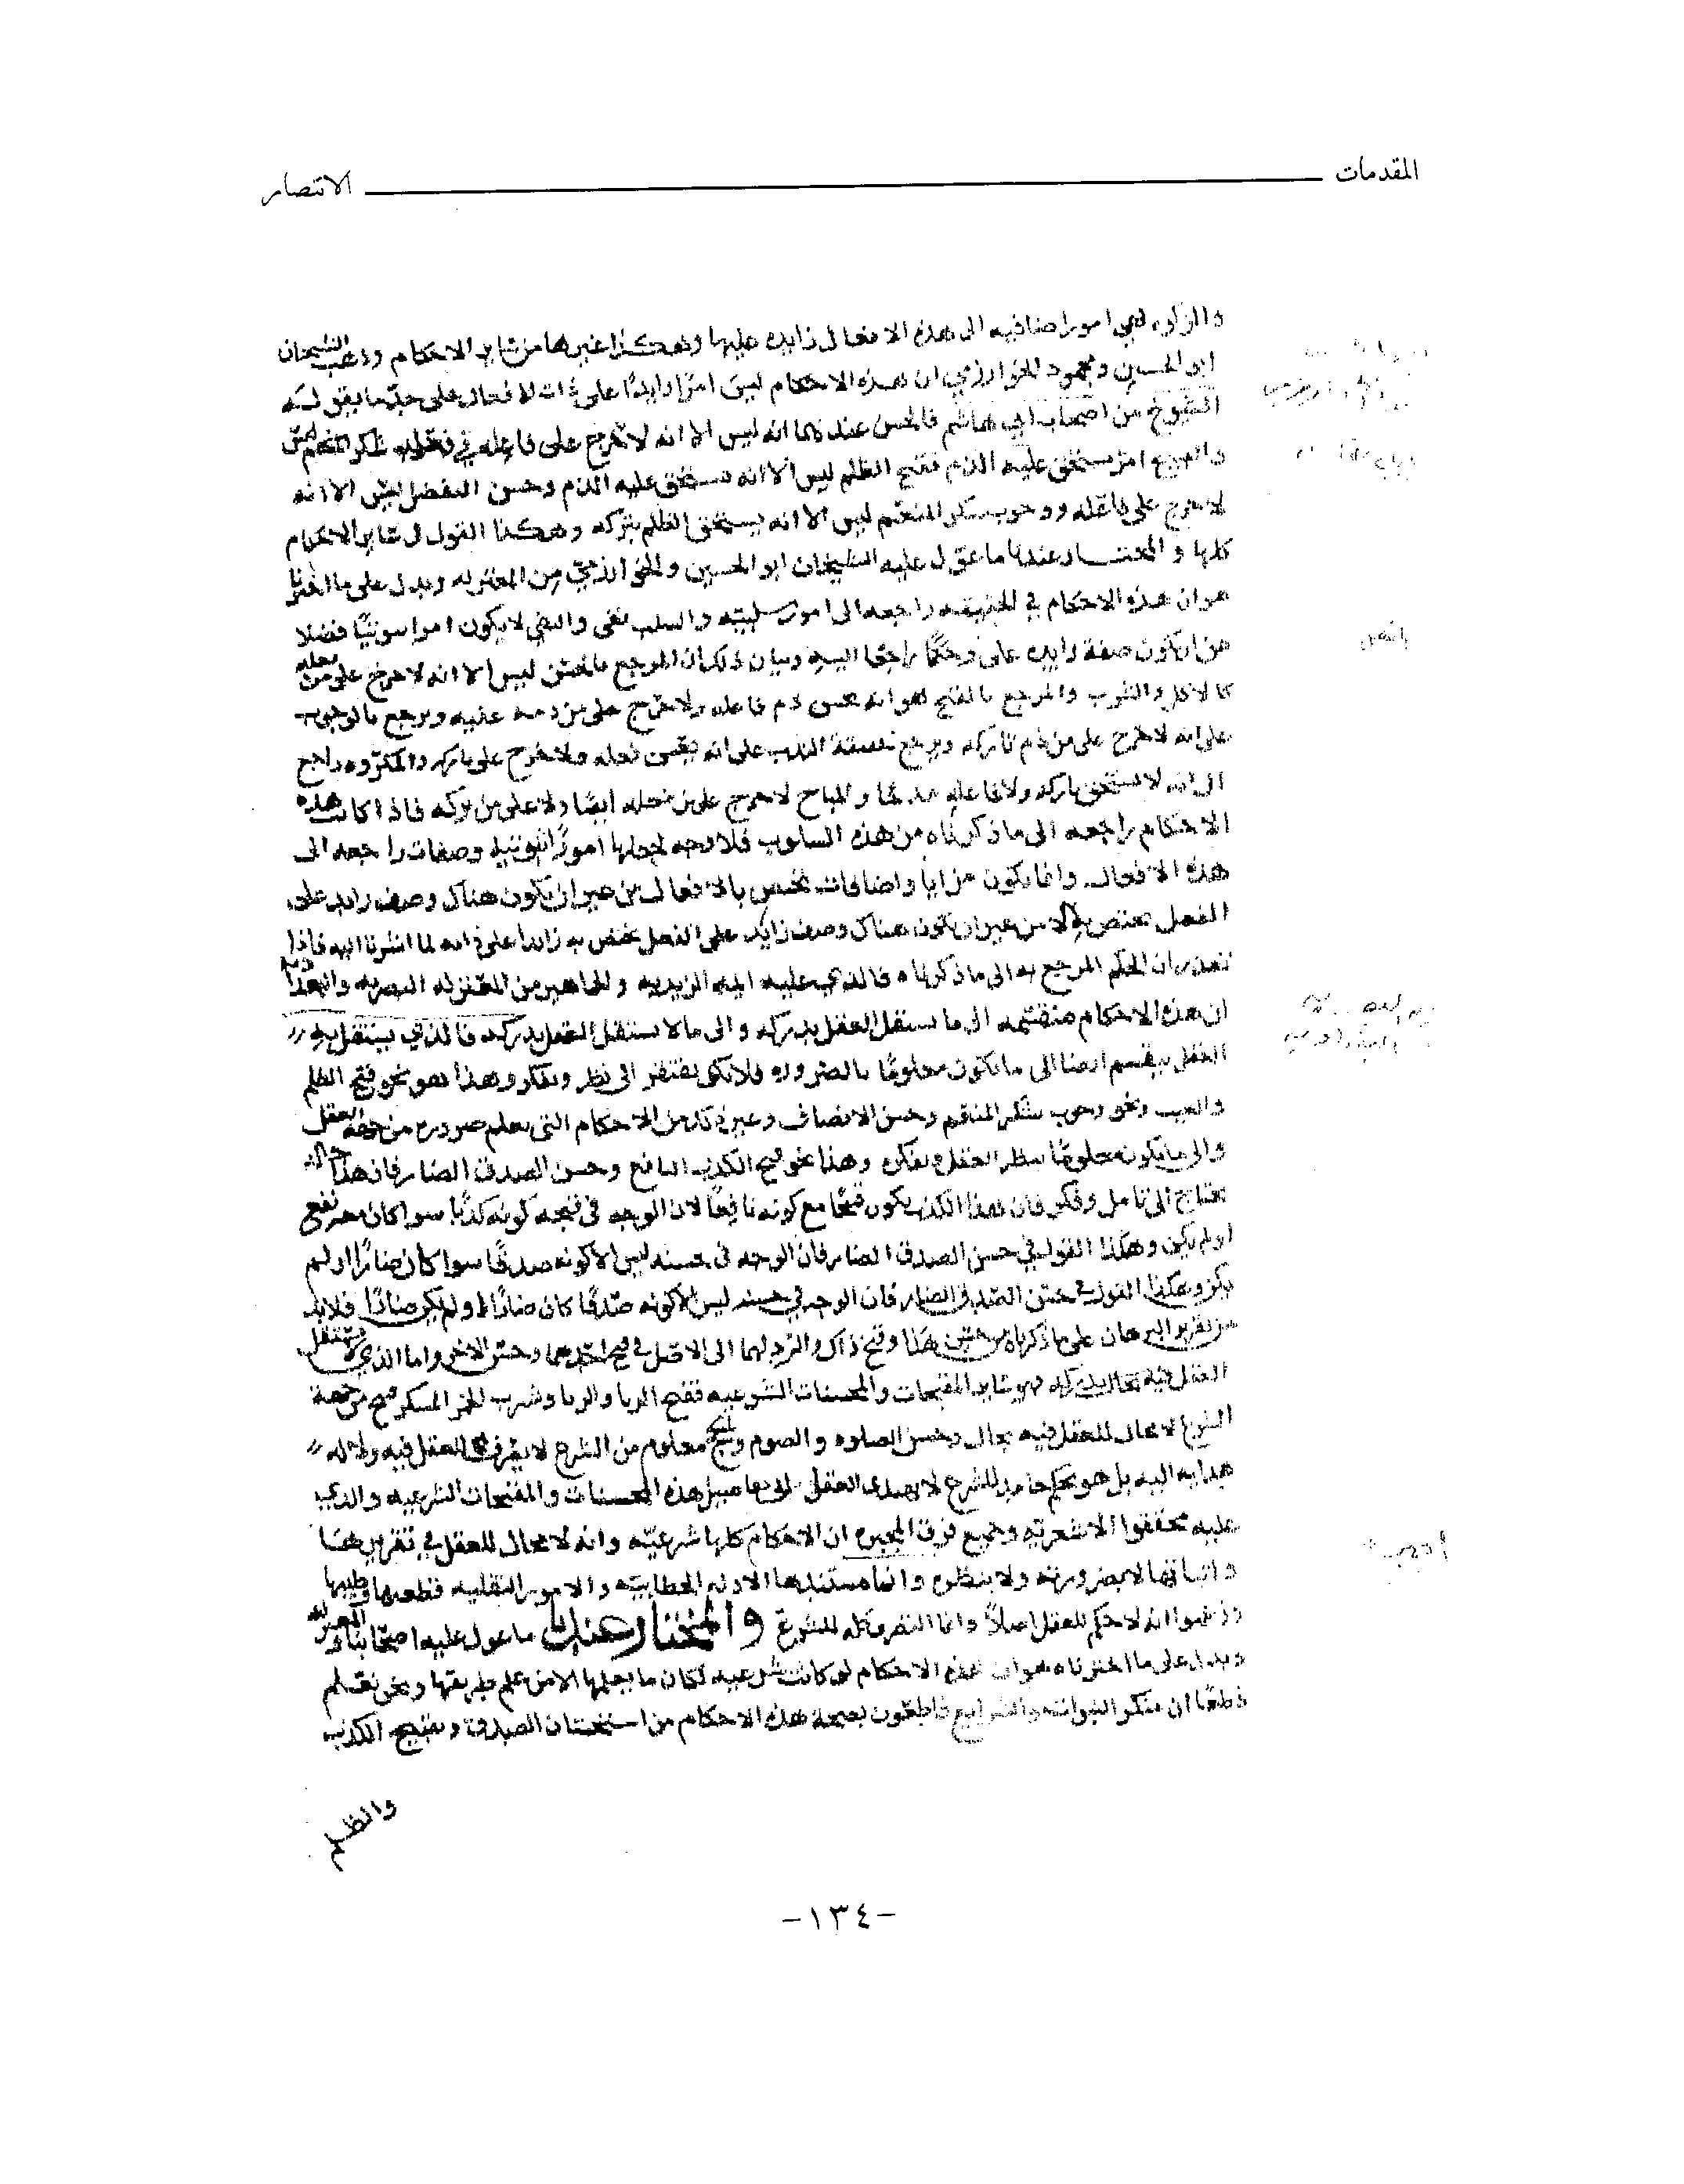 المقدمات
الانتصار
والزاويه فهي امور اضافيه الى هذه الافعال زايده عليها وهكذا غيرها من ساير الاحكام وذهب الشيخان
ابو الحسين ومحمود الخوارزمي ان هذه الاحكام ليس امرا زايدا على ذات الافعال على حد ما يقوله
الشيوخ من اصحاب ابي هاشم فالحسن عندهما انه ليس الا انه لا حرج على فاعله في فعله
والقبيح امر يستحق عليه الذم فقبح الظلم ليس الا انه يستحق عليه الذم وحسن التفضل ليس الا انه
لا حرج على فاعله ووجوب شكر المنعم ليس الا انه يستحق الظلم بتركه وهكذا القول في ساير الاحكام
كلها والمختار عندنا ما عول عليه الشيخان ابو الحسين والخوارزمي من المعتزله ويدل على ما اخترنا
هو ان هذه الاحكام في الحقيقه راجعه الى امور سلبيه والسلب نفي والنفي لا يكون امرا ثبوتيا فضلا
من ان يكون صفة زايده على وحكما راجعا اليه وبيان ذلك ان المرجع بالحسن ليس الا انه لا حرج على من فعله
كالاكل والشرب والمرجع بالقبح هو انه يحسن ذم فاعله ولا حرج على من ذمه عليه ويرجع بالوجوب
على انه لا حرج على من ذم تاركه ويرجع بصفة الندب على انه يحسن فعله ولا حرج على تاركه والمكروه راجع
الى انه لا يستحق تاركه ولا فاعله والمباح لا حرج على من فعله ايضا ولا على من تركه فاذا كانت هذه
الاحكام راجعه الى ما ذكرناه من هذه السلوب فلا وجه لجعلها امورا ثبوتيه وصفات راجعه الى
هذه الافعال وانما يكون مزايا واضافات تختص بالافعال من غير ان يكون هناك وصف زايد على
الفعل يختص به الا من غير ان يكون هناك وصف زايد على الفعل يختص به زايدا على ذاته لما اشرنا اليه فاذا
تقرر ان الحكم المرجع به الى ما ذكرناه فالذي عليه ايمة الزيديه والجماهير من المعتزله البصريه والبغداذيه
ان هذه الاحكام منقسمه الى ما يستقل العقل بدركه والى ما لا يستقل العقل بدركه فالذي يستقل به
العقل ينقسم ايضا الى ما يكون معلوما بالضروره فلا يكون يفتقر الى نظر وتفكر وهذا هو نحو قبح الظلم
والعبث ونحو وجوب شكر المنعم وحسن الانصاف وغير ذلك من الاحكام التي يعلم ضروره من جهة العقل
والى ما يكون معلوما بنظر العقل وتفكره وهذا نحو قبح الكذب النافع وحسن الصدق الضار فان هذا حاله
يحتاج الى تامل وفكر فان هذا الكذب يكون قبيحا مع كونه نافعا لان الوجه في قبحه كونه كذبا سوا كان معه نفع
او لم يكن وهكذا القول في حسن الصدق الضار فان الوجه في حسنه ليس الا كونه صدقا سوا كان ضارا او لم
يكن وهكذا القول في حسن الصدق الضار فان الوجه في حسنه ليس الا كونه صدقا كان ضارا او لم يكن ضارا فلا بد
من تقرير البرهان على ما ذكرناه من حسن هذا وقبح ذاك والرد لهما الى الاصل في قبح احدهما وحسن الاخر واما الذي لا يستقل
العقل فيه بحال بدركه فهو ساير المقبحات والمحسنات الشرعيه فقبح الربا والزنا وشرب الخمر المسكر قبيح من جهة
الشرع لا مجال للعقل فيه بحال وحسن الصلوه والصوم والحج معلوم من الشرع لا يتصرف العقل فيه ولا له
هدايه اليه بل هو تحكم جامد للشرع لا يهتدي العقل الى تفاصيل هذه المحسنات والمقبحات الشرعيه والذي
عليه محققوا الاشعريه وجميع فرق المجبره ان الاحكام كلها شرعيه وانه لا مجال للعقل في تقريرها
واثباتها لا بضرورته ولا بنظره وانما مستندها الادله الخطابيه والامور النقليه قطعيها وظنيها
وزعموا انه لا حكم للعقل اصلا وانما التصرف كله للشرع والمختار عندنا ما عول عليه اصحابنا والمعتزله
ويدل على ما اخترناه هو ان هذه الاحكام لو كانت شرعيه لكان ما يعلمها الا من علم طريقها ونحن نعلم
قطعا ان منكر النبوات والشرايع قاطعون بصحة هذه الاحكام من استحسان الصدق وتقبيح الكذب
والظلم
-١٣٤-